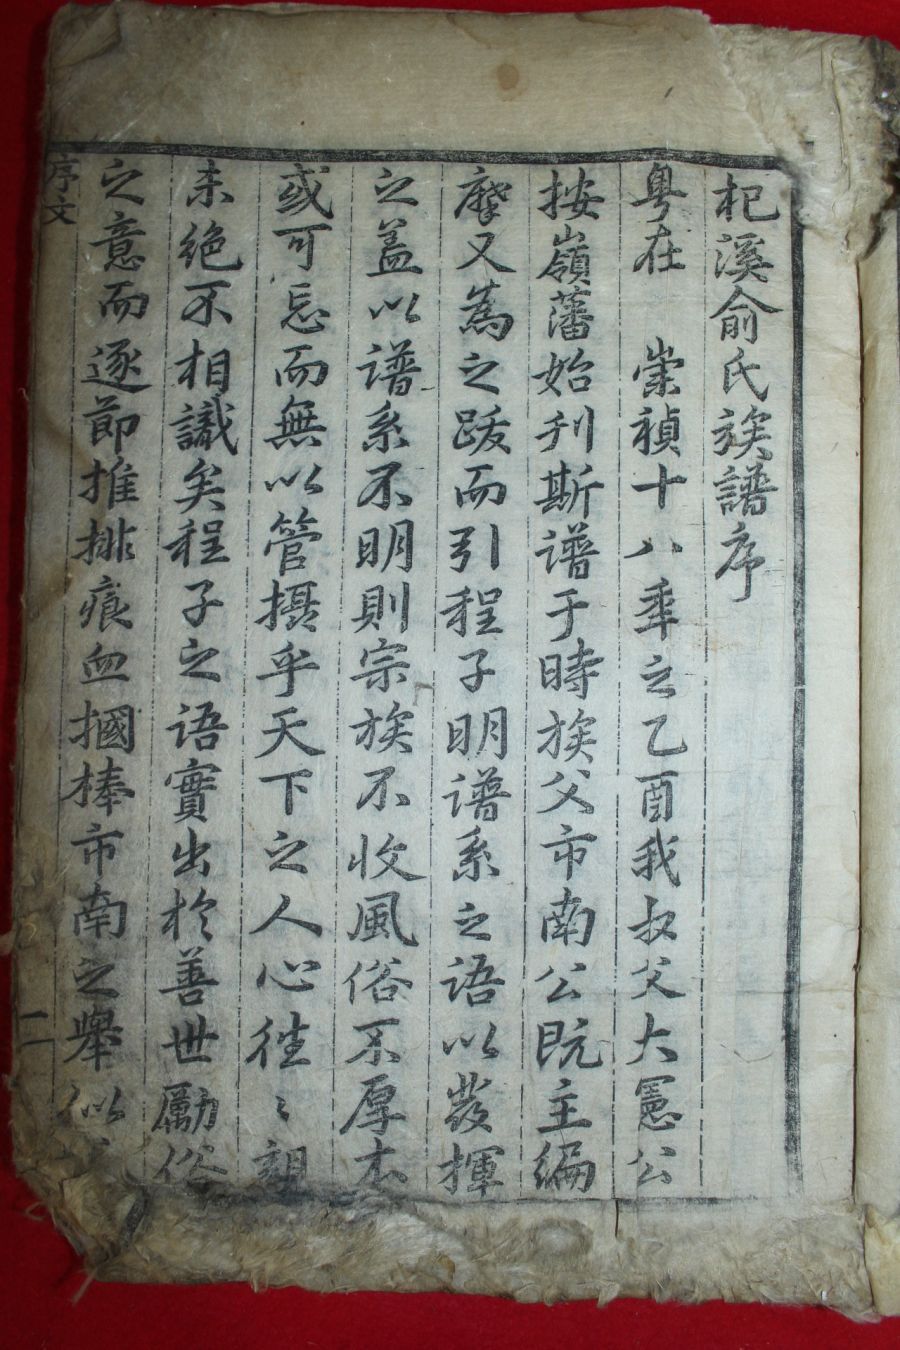 杞溪俞氏族譜序
粤在 崇禎十八年之乙酉我叔父大憲公
按嶺藩始刋斯譜于時族父市南公既主編
摩又為之跋而引程子明譜系之語以發揮
之盖以譜系不明則宗族不收風俗不厚本
或可忘而無以管摄乎天下之人心徃〻親
未絶不相識矣程子之語實出於善世勵俗
之意而逐節推排痕血摑棒市南之舉似
序文
二